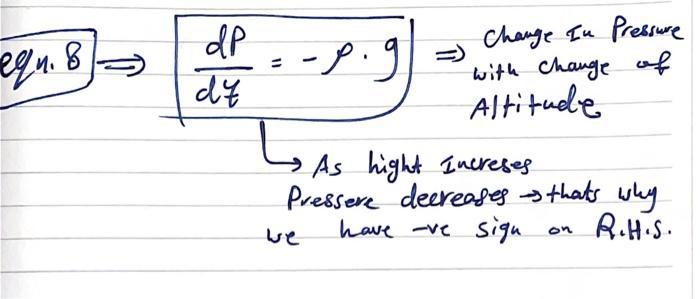 eqn. 8 ⇒ dP/dz = - ρ . g ⇒ Change In Pressure
with change of
Altitude
↳ As hight Increses
Pressere decreases → thats why
we have -ve sign on R.H.S.